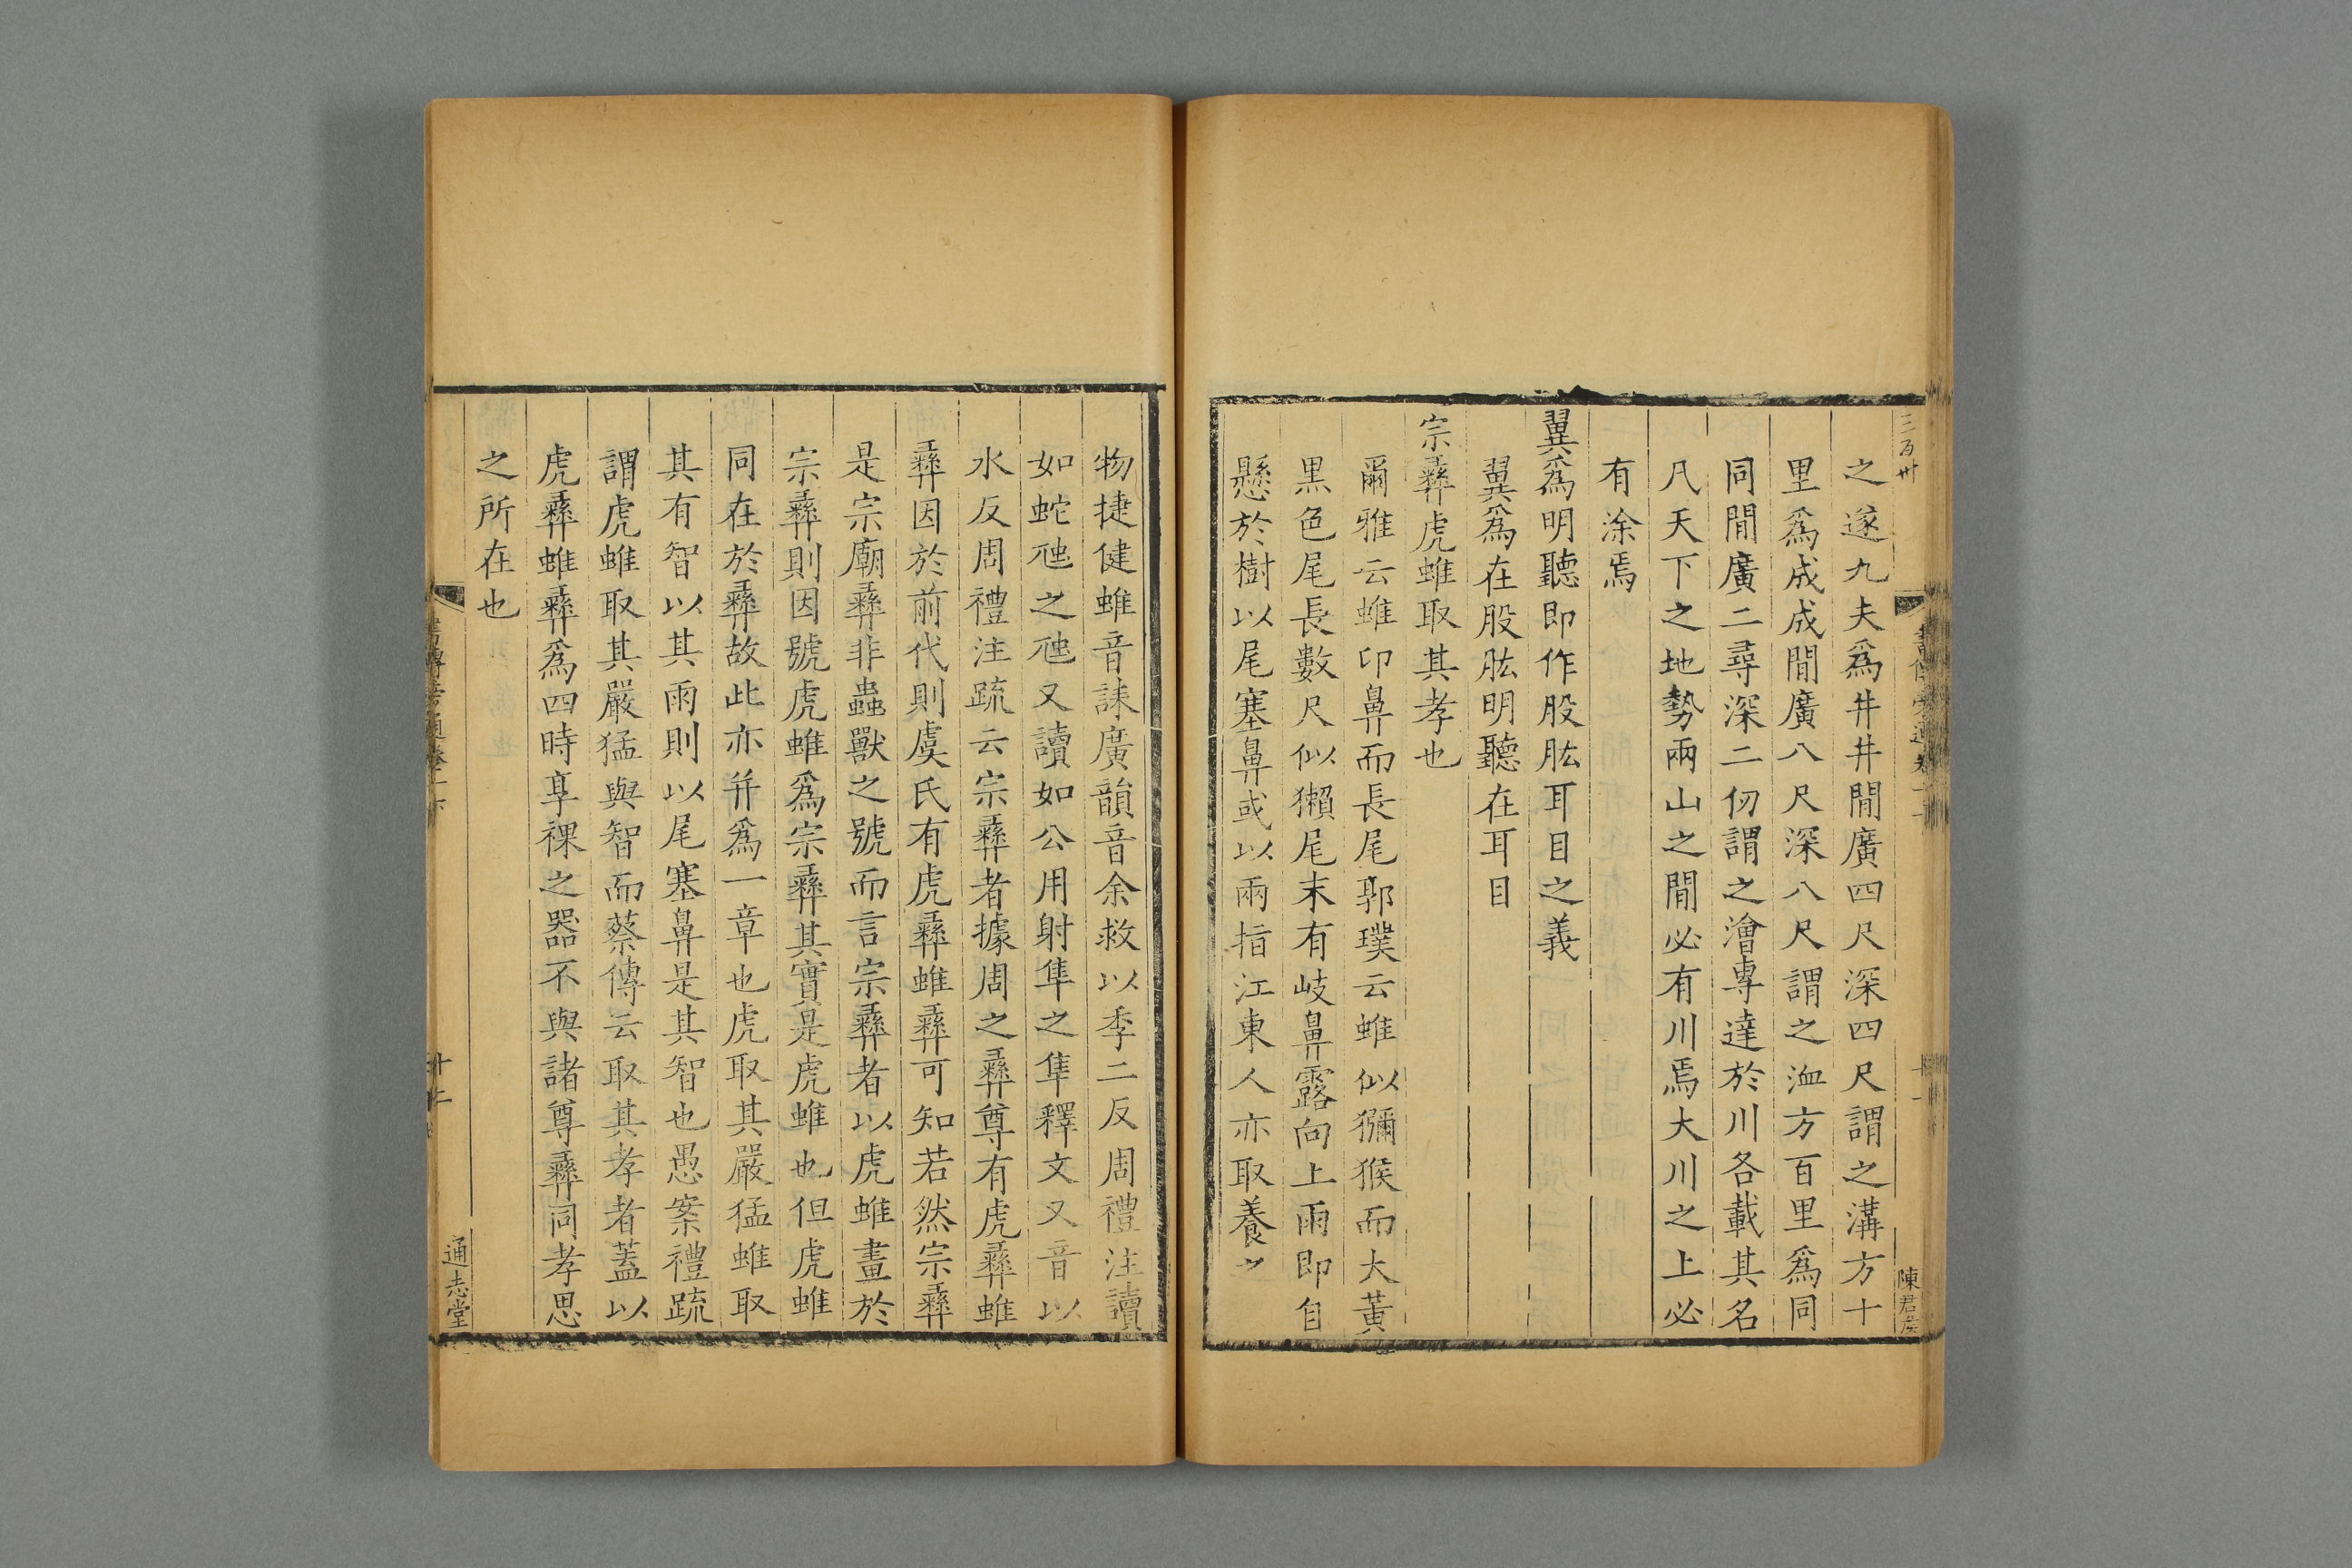 三百卅
之遂九夫爲井井閒廣四尺深四尺謂之溝方十
里爲成成閒廣八尺深八尺謂之洫方百里爲同
同閒廣二尋深二仞謂之澮專達於川各載其名
凡天下之地勢兩山之閒必有川焉大川之上必
有涂焉
翼爲明聽即作股肱耳目之義
翼爲在股肱明聽在耳目
宗彝虎蜼取其孝也
爾雅云蜼卬鼻而長尾郭璞云蜼似獼猴而大黃
黑色尾長數尺似獺尾末有岐鼻露向上雨即自
懸於樹以尾塞鼻或以兩指江東人亦取養之
陳君侯
物捷健蜼音誄廣韻音余救以季二反周禮注讀
如蛇虺之虺又讀如公用射隼之隼釋文又音以
水反周禮注疏云宗彝者據周之彝尊有虎彝蜼
彝因於前代則虞氏有虎彝蜼彝可知若然宗彝
是宗廟彝非蟲獸之號而言宗彝者以虎蜼畫於
宗彝則因號虎蜼爲宗彝其實是虎蜼也但虎蜼
同在於彝故此亦并爲一章也虎取其嚴猛蜼取
其有智以其雨則以尾塞鼻是其智也愚案禮疏
謂虎蜼取其嚴猛與智而蔡傳云取其孝者蓋以
虎彝蜼彝爲四時享祼之器不與諸尊彝同孝思
之所在也
通志堂